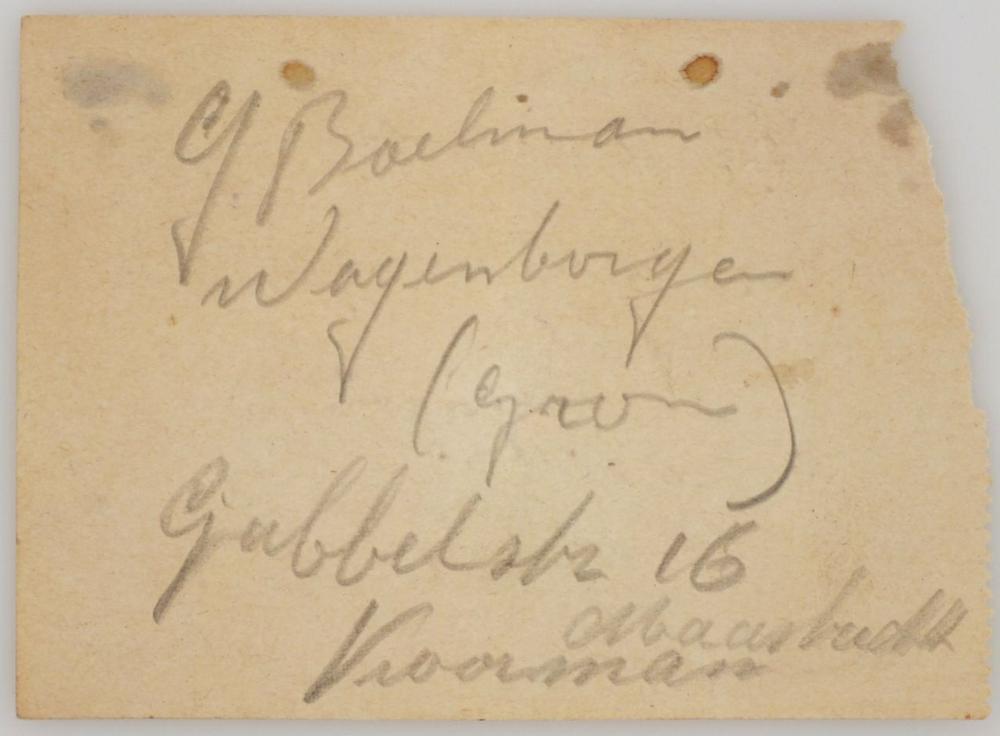 G Boelman
Wagenborgen
(Gron)
Gubbelstr 16
Maastricht
Voorman